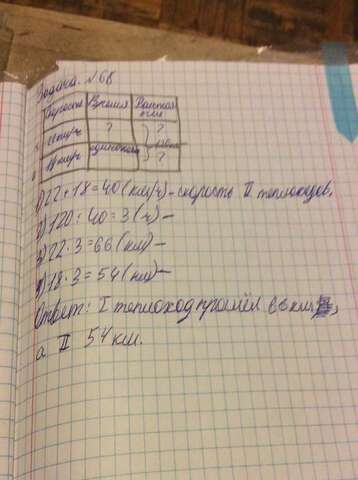 Задача. №68
Скорость Время Расстояние
22 км/ч ? ?
18 км/ч одинаков. 120км ?
1) 22 + 18 = 40 (км/ч) - скорость II теплоходов.
2) 120 : 40 = 3 (ч) -
3) 22 · 3 = 66 (км) -
4) 18 · 3 = 54 (км) -
Ответ: I теплоход прошёл 66 км,
а II 54 км.